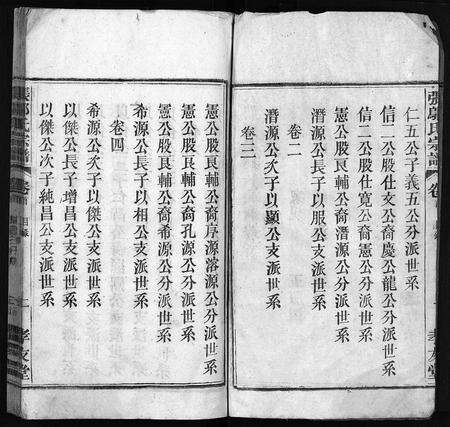 張鄭氏宗譜
孝友堂
仁五公子義五公分派世系
信二公股仕文公裔慶公龍公分派世系
信二公股仕寬公裔憲公分派世系
憲公股良輔公裔潛源公分派世系
潛源公長子以服公支派世系
卷二
潛源公次子以顯公支派世系
卷三
憲公股良輔公裔序源溶源公分派世系
憲公股良輔公裔孔源公分派世系
憲公股良輔公裔希源公分派世系
希源公長子以相公支派世系
卷四
希源公次子以傑公支派世系
以傑公長子增昌公支派世系
以傑公次子純昌公支派世系
孝友堂